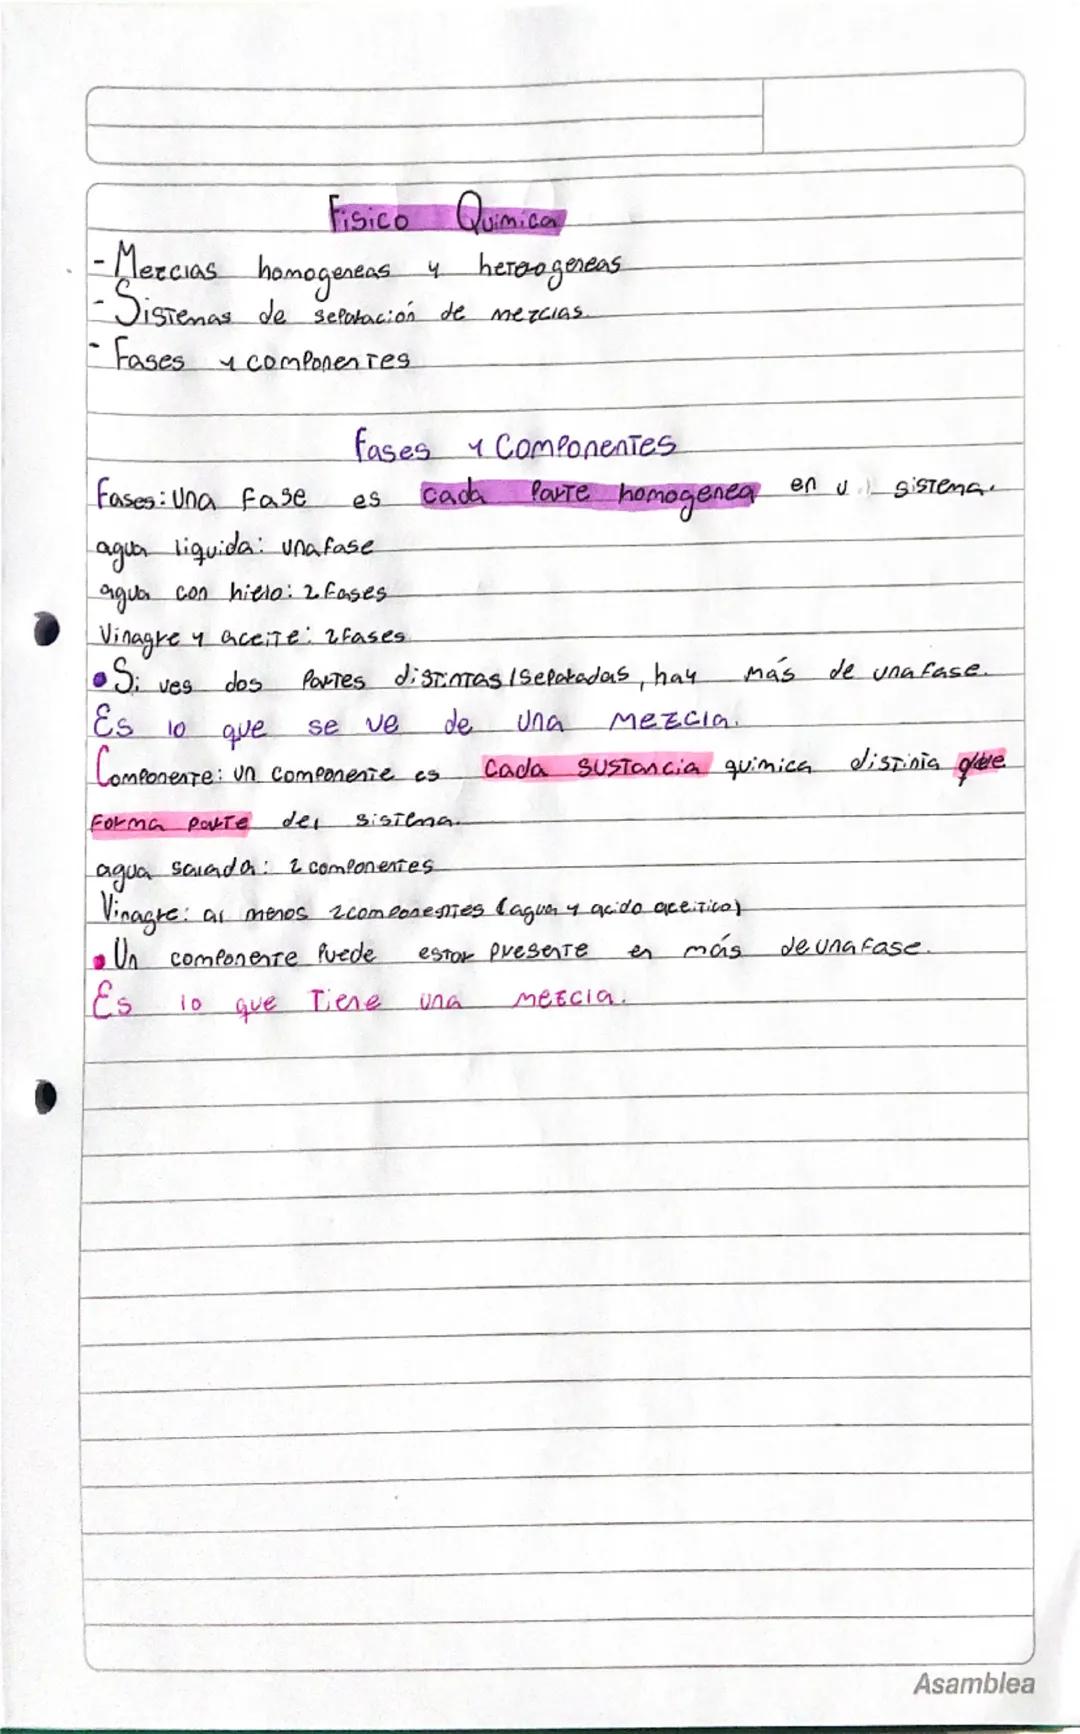 Fisico Quimica
- Mezclas homogeneas y heterogeneas
- Sistemas de separación de mezclas.
- Fases y componentes
Fases y Componentes
Fases: Una fase es cada parte homogenea en u sistema.
agua liquida: una fase
agua con hielo: 2 fases
Vinagre y aceite: 2 fases
• Si ves dos partes distintas/separadas, hay más de una fase.
Es lo que se ve de una mezcla.
Componente: Un componente es cada sustancia quimica distinta que
forma parte del sistema.
agua salada: 2 componentes
Vinagre: al menos 2 componentes (agua y acido aceitico)
• Un componente puede estar presente en más de una fase.
Es lo que tiene una mezcla.
Asamblea